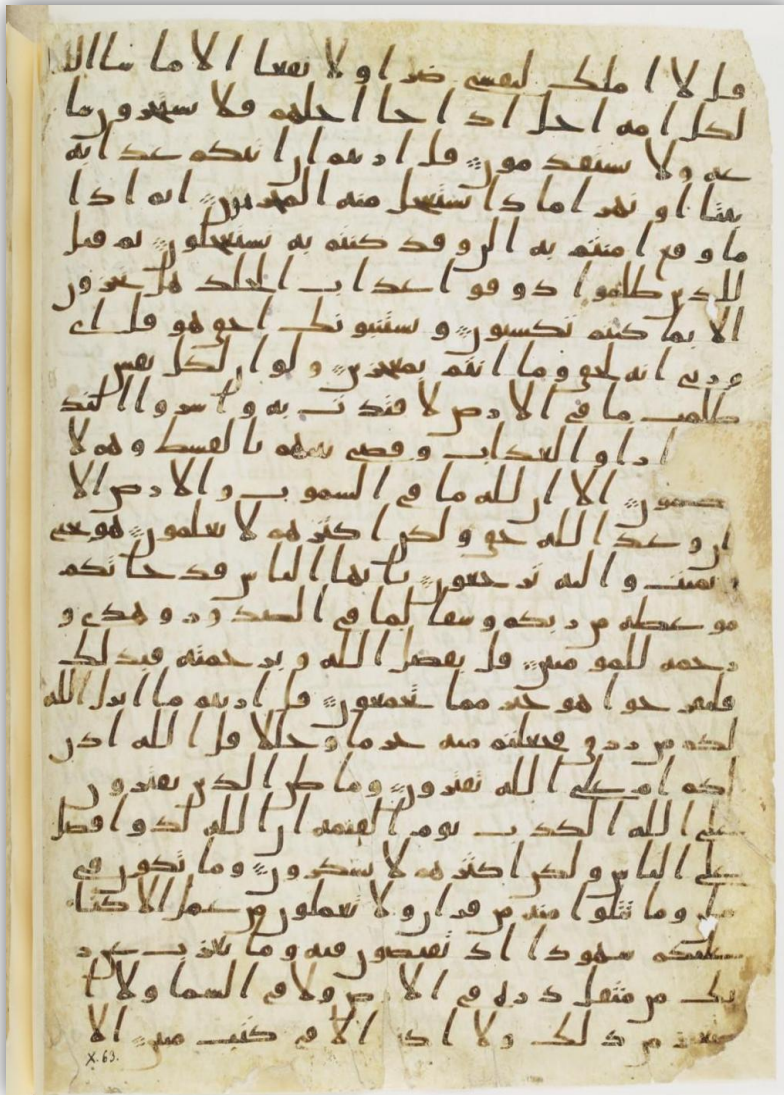 قل لا املك لنفسي ضرا ولا نفعا الا ما شا الله
لكل امه اجل اذا جا اجلهم فلا يستخرون سا
عه ولا يستقدمون قل اريتم ان اتيكم عذابه
بيتا او نهرا ما ذا يستعجل منه المجرمون اثم اذا
ما وقع امنتم به الن وقد كنتم به تستعجلون ثم قيل
للذين ظلموا ذوقوا عذاب الخلد هل تجزون
الا بما كنتم تكسبون ويستنبونك احق هو قل اي
وربي انه لحق وما انتم بمعجزين ولو ان لكل نفس
ظلمت ما في الارض لافتدت به واسروا الند
راوا العذاب وقضي بينهم بالقسط وهم لا
يظلمون الا ان لله ما في السموت والارض الا
ان وعد الله حق ولكن اكثرهم لا يعلمون هو يحي
ويميت واليه ترجعون يايها الناس قد جاتكم
موعظه من ربكم وشفا لما في الصدور وهدى و
رحمه للمومنين قل بفضل الله وبرحمته فبذلك
فليفرحوا هو خير مما تجمعون قل اريتم ما انزل الله
لكم من رزق فجعلتم منه حرما وحللا قل الله اذن
لكم ام على الله تفترون وما ظن الذين يفترون
على الله الكذب يوم القيمه ان الله لذوا فضل
على الناس ولكن اكثرهم لا يشكرون وما تكون في
شان وما تتلوا منه من قران ولا تعملون من عمل الا كنا
عليكم شهودا اذ تفيضون فيه وما يعزب عن ر
بك من مثقل ذره في الارض ولا في السما ولا ا
صغر من ذلك ولا اكبر الا في كتب مبين الا
X.63.